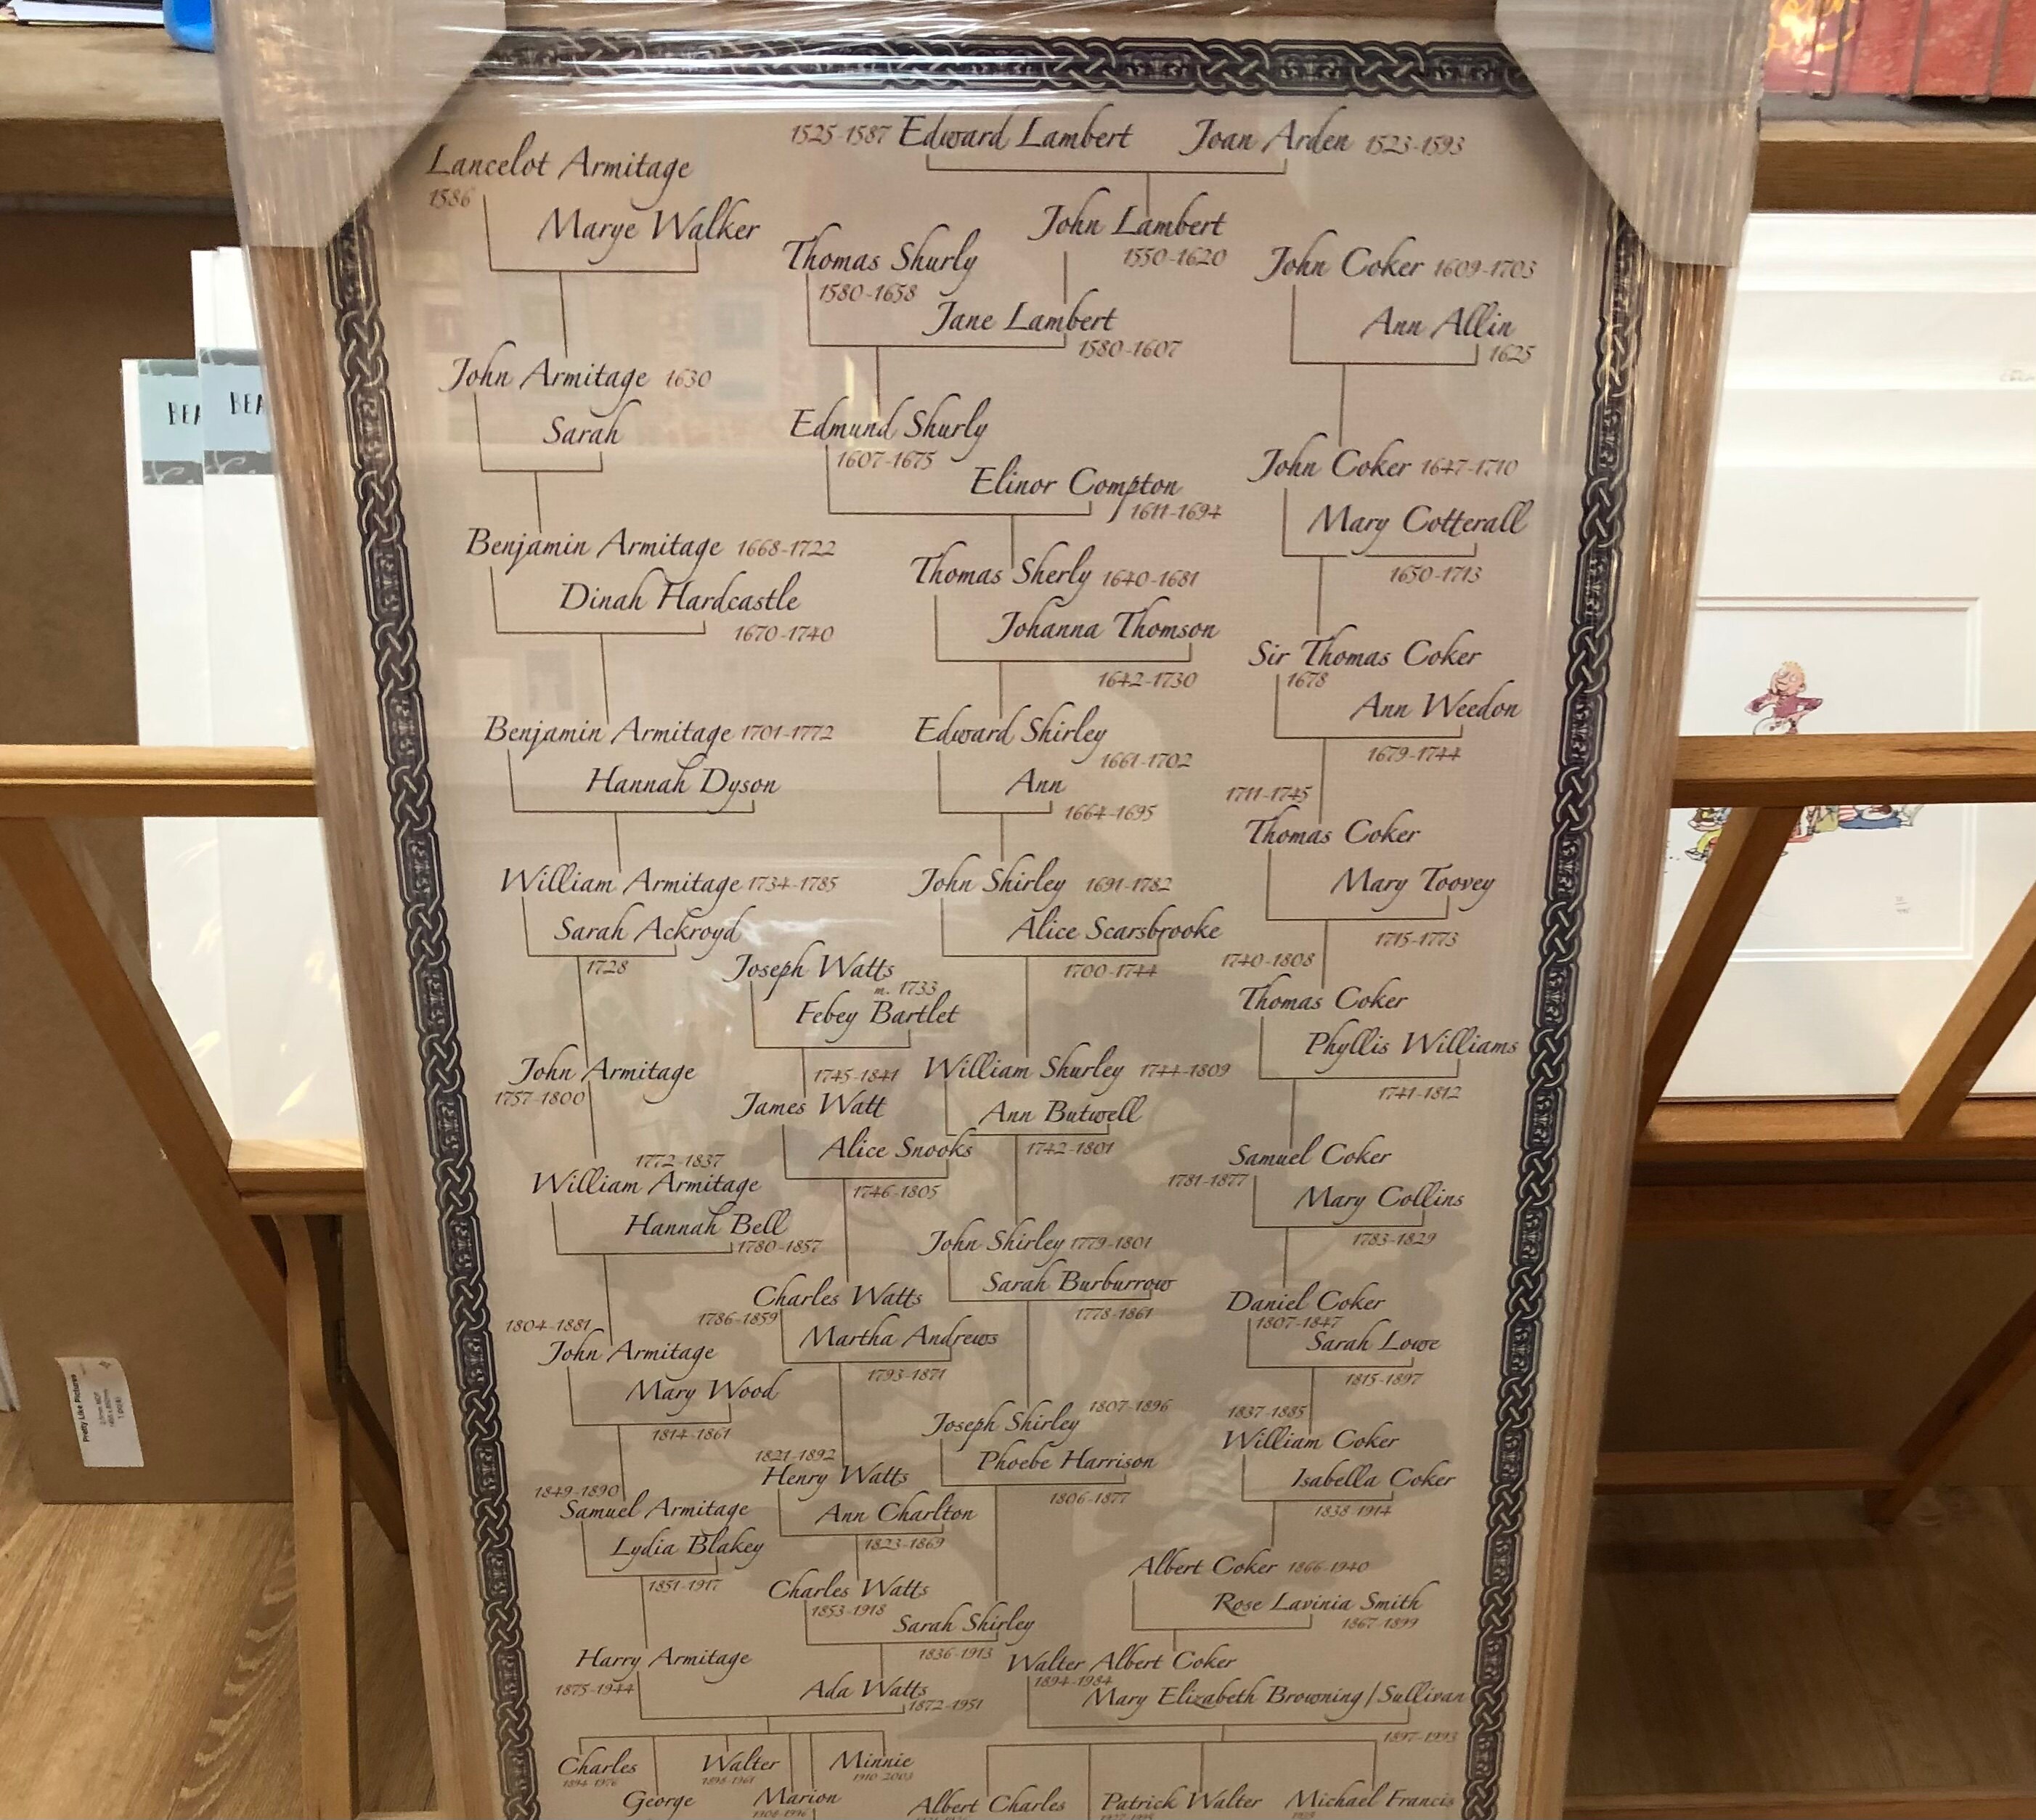 1525-1587 Edward Lambert Joan Arden 1523-1593
Lancelot Armitage
1586
Marye Walker
John Lambert
1550-1620
Thomas Shurly
1580-1658
John Coker 1609-1703
Jane Lambert
1580-1607
Ann Allin
1625
John Armitage 1630
Sarah
Edmund Shurly
1607-1675
Elinor Compton
1611-1694
John Coker 1647-1710
Mary Cotterall
1650-1713
Benjamin Armitage 1668-1722
Dinah Hardcastle
1670-1740
Thomas Sherly 1640-1681
Johanna Thomson
1642-1730
Sir Thomas Coker
1678
Ann Weedon
1679-1744
Benjamin Armitage 1701-1772
Hannah Dyson
Edward Shirley
1661-1702
Ann
1664-1695
1711-1745
Thomas Coker
Mary Toovey
1715-1773
William Armitage 1734-1785
Sarah Ackroyd
1728
John Shirley 1691-1782
Alice Scarsbrooke
1700-1744
Joseph Watts
m. 1733
Febey Bartlet
1740-1808
Thomas Coker
Phyllis Williams
1741-1812
John Armitage
1757-1800
1745-1841
James Watt
Alice Snooks
1746-1805
William Shurley 1744-1809
Ann Butwell
1742-1801
Samuel Coker
1781-1877
Mary Collins
1783-1829
1772-1837
William Armitage
Hannah Bell
1780-1857
John Shirley 1779-1801
Sarah Burburrow
1778-1861
Charles Watts
1786-1859
Martha Andrews
1793-1871
Daniel Coker
1807-1847
Sarah Lowe
1815-1897
1804-1881
John Armitage
Mary Wood
1814-1861
Joseph Shirley 1807-1896
Phoebe Harrison
1806-1877
1837-1885
William Coker
Isabella Coker
1838-1914
1821-1892
Henry Watts
Ann Charlton
1823-1869
1849-1890
Samuel Armitage
Lydia Blakey
1851-1917
Charles Watts
1853-1918
Sarah Shirley
1836-1913
Albert Coker 1866-1940
Rose Lavinia Smith
1867-1899
Harry Armitage
1875-1944
Ada Watts
1872-1951
Walter Albert Coker
1894-1984
Mary Elizabeth Browning/Sullivan
1897-1993
Charles
1894-1976
Walter
1898-1961
Minnie
1910-2003
George
Marion
1908-1996
Albert Charles
Patrick Walter
Michael Francis
BEA
BEA
Pretty Like Pictures